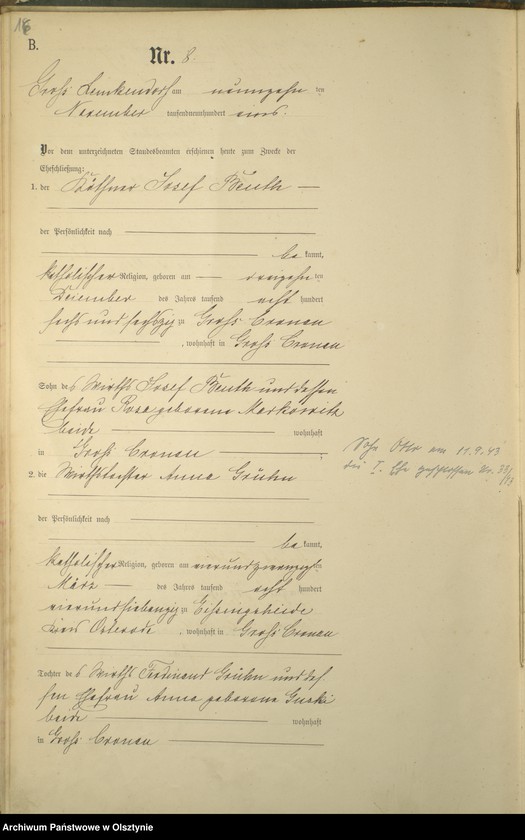 16
B.
Nr. 8.
Groß Lemkendorf am neunzehnten
November tausendneunhundert eins:
Vor dem unterzeichneten Standesbeamten erschienen heute zum Zwecke der
Eheschließung:
1. der Käthner Josef Beuth
der Persönlichkeit nach
bekannt,
katholischer Religion, geboren am dreizehnten
Dezember des Jahres tausend acht hundert
sechs und sechszig zu Groß Cronau
, wohnhaft in Groß Cronau
Sohn des Wirths Josef Beuth und dessen
Ehefrau Rosa geborene Markowitz
beide wohnhaft
in Groß Cronau
Sohn Otto am 11.9.43
die I. Ehe geschlossen Nr.
2. die Wirthstochter Anna Grühn
der Persönlichkeit nach
bekannt,
katholischer Religion, geboren am vierundzwanzigsten
März des Jahres tausend acht hundert
vierundsiebenzig zu
Kreis Osterode, wohnhaft in Groß Cronau
Tochter des Wirths Ferdinand Grühn und des-
sen Ehefrau Anna geborene
beide wohnhaft
in Groß Cronau
Archiwum Państwowe w Olsztynie